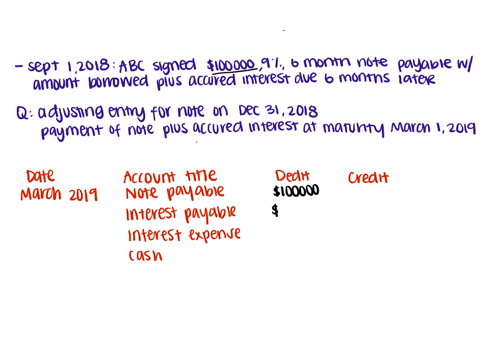 - sept 1, 2018: ABC signed $100000, 9%, 6 month note payable w/
amount borrowed plus accured interest due 6 months later
Q: adjusting entry for note on Dec 31, 2018
payment of note plus accured interest at maturity March 1, 2019
Date Account title Dedit Credit
March 2019 Note payable $100000
Interest payable $
Interest expense
cash